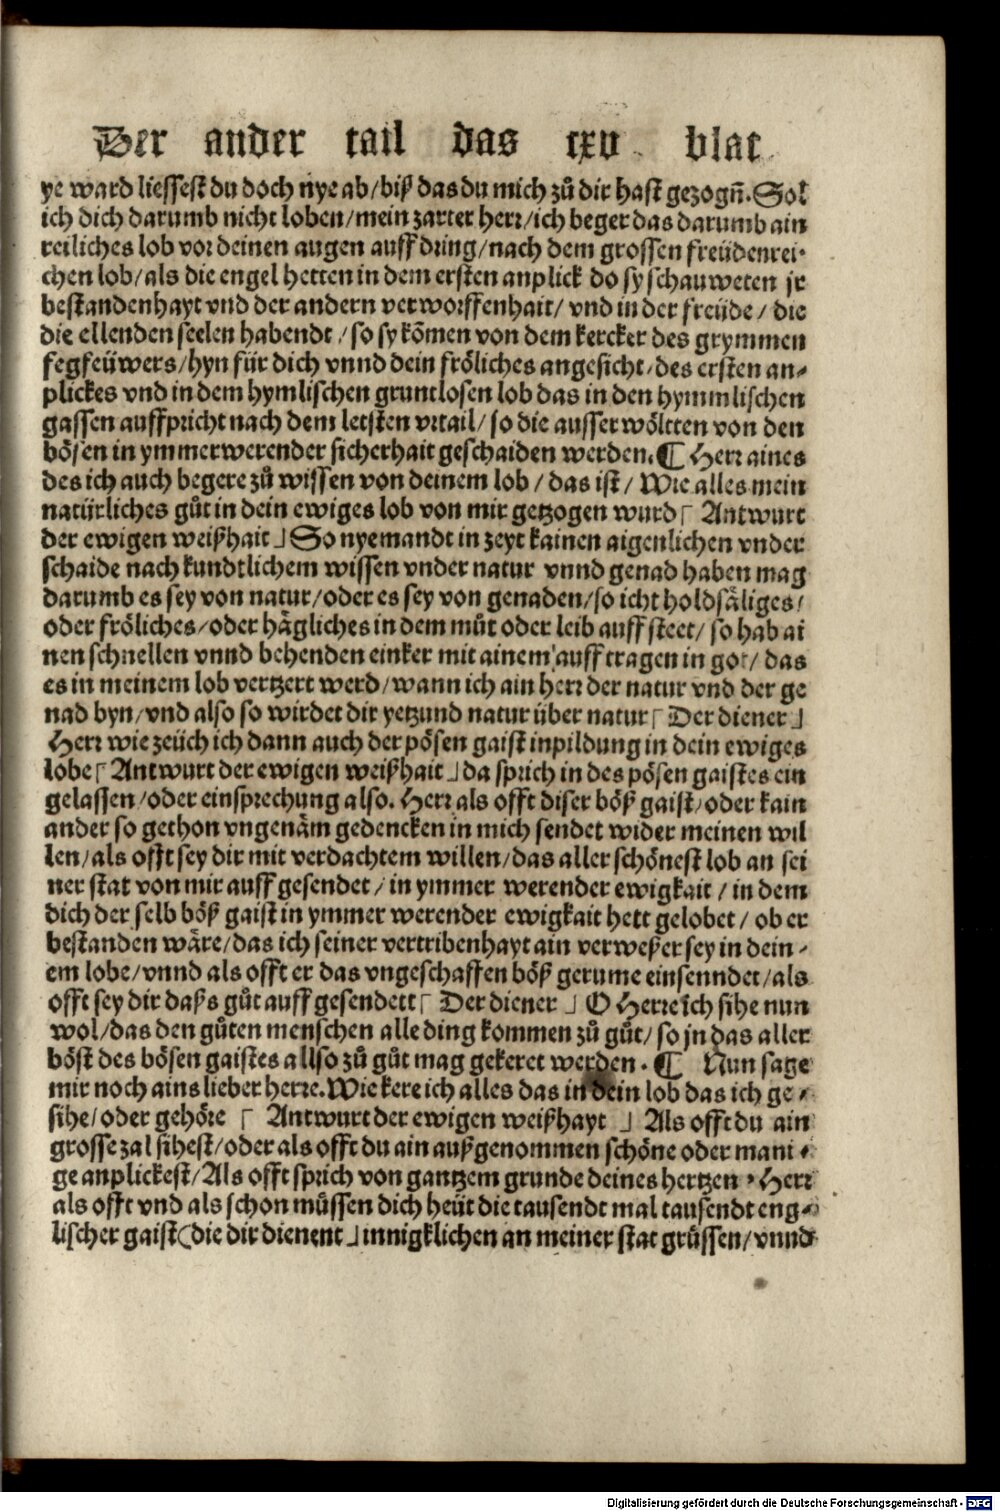 Der ander tail das lxv blat
ye ward liessest du doch nye ab/biß das du mich zů dir hast gezogn̄. Sol
ich dich darumb nicht loben/mein zarter herr/ich beger das darumb ain
reiliches lob vor deinen augen auff dring/nach dem grossen freüdenrei-
chen lob/als die engel hetten in dem ersten anplick do sy schauweten jr
bestandenhayt vnd der andern verworffenhait/ vnd in der freüde / die
die ellenden seelen habendt /so sy kōmen von dem kercker des grymmen
fegfeüwers/hyn für dich vnnd dein fröliches angesicht/des ersten an-
plickes vnd in dem hymlischen gruntlosen lob das in den hymmlischen
gassen auffpricht nach dem letsten vrtail/ so die ausser wöltten von den
bösen in ymmerwerender sicherhait geschaiden werden. ¶ Herr aines
des ich auch begere zů wissen von deinem lob / das ist/ Wie alles mein
natürliches gůt in dein ewiges lob von mir getzogen wurd ⌈ Antwurt
der ewigen weißhait ⌋ So nyemandt in zeyt kainen aigenlichen vnder
schaide nach kundtlichem wissen vnder natur vnnd genad haben mag
darumb es sey von natur/oder es sey von genaden/so icht holdsäliges/
oder fröliches/oder hägliches in dem můt oder leib auff steet/ so hab ai
nen schnellen vnnd behenden einker mit ainem auff tragen in got/ das
es in meinem lob vertzert werd/wann ich ain herr der natur vnd der ge
nad byn/vnd also so wirdet dir yetzund natur über natur ⌈ Der diener ⌋
Herr wie zeüch ich dann auch der pösen gaist inpildung in dein ewiges
lobe ⌈ Antwurt der ewigen weißhait ⌋ da sprich in des pösen gaistes ein
gelassen/oder einsprechung also. Herr als offt diser böß gaist/oder kain
ander so gethon vngenäm gedencken in mich sendet wider meinen wil
len/als offt sey dir mit verdachtem willen/das aller schönest lob an sei
ner stat von mir auff gesendet/ in ymmer werender ewigkait / in dem
dich der selb böß gaist in ymmer werender ewigkait hett gelobet/ ob er
bestanden wäre/das ich seiner vertribenhayt ain verweßer sey in dein-
em lobe/vnnd als offt er das vngeschaffen böß gerume einsenndet/als
offt sey dir daßs gůt auff gesendett ⌈ Der diener ⌋ O Herre ich sihe nun
wol/das den gůten menschen alle ding kommen zů gůt/ so jn das aller
böst des bösen gaistes allso zů gůt mag gekeret werden. ¶ Nun sage
mir noch ains lieber herre. Wie kere ich alles das in dein lob das ich ge-
sihe/oder gehöre ⌈ Antwurt der ewigen weißhayt ⌋ Als offt du ain
grosse zal sihest/oder als offt du ain außgenommen schöne oder mani-
ge anplickest/Als offt sprich von gantzem grunde deines hertzen, Herr
als offt vnd als schon müssen dich heüt die tausendt mal tausendt eng-
lischer gaist (die dir dienent ⌋ innigklichen an meiner stat grüssen/vnnd
Digitalisierung gefördert durch die Deutsche Forschungsgemeinschaft - DFG